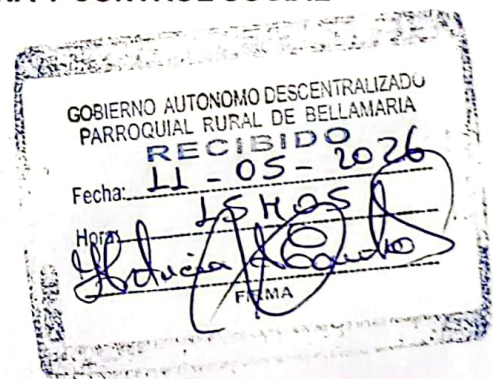 Y CONTROL SOCIAL
GOBIERNO AUTONOMO DESCENTRALIZADO
PARROQUIAL RURAL DE BELLAMARIA
RECIBIDO
Fecha: 11 - 05 - 2026
Hora: 15H05
FIRMA